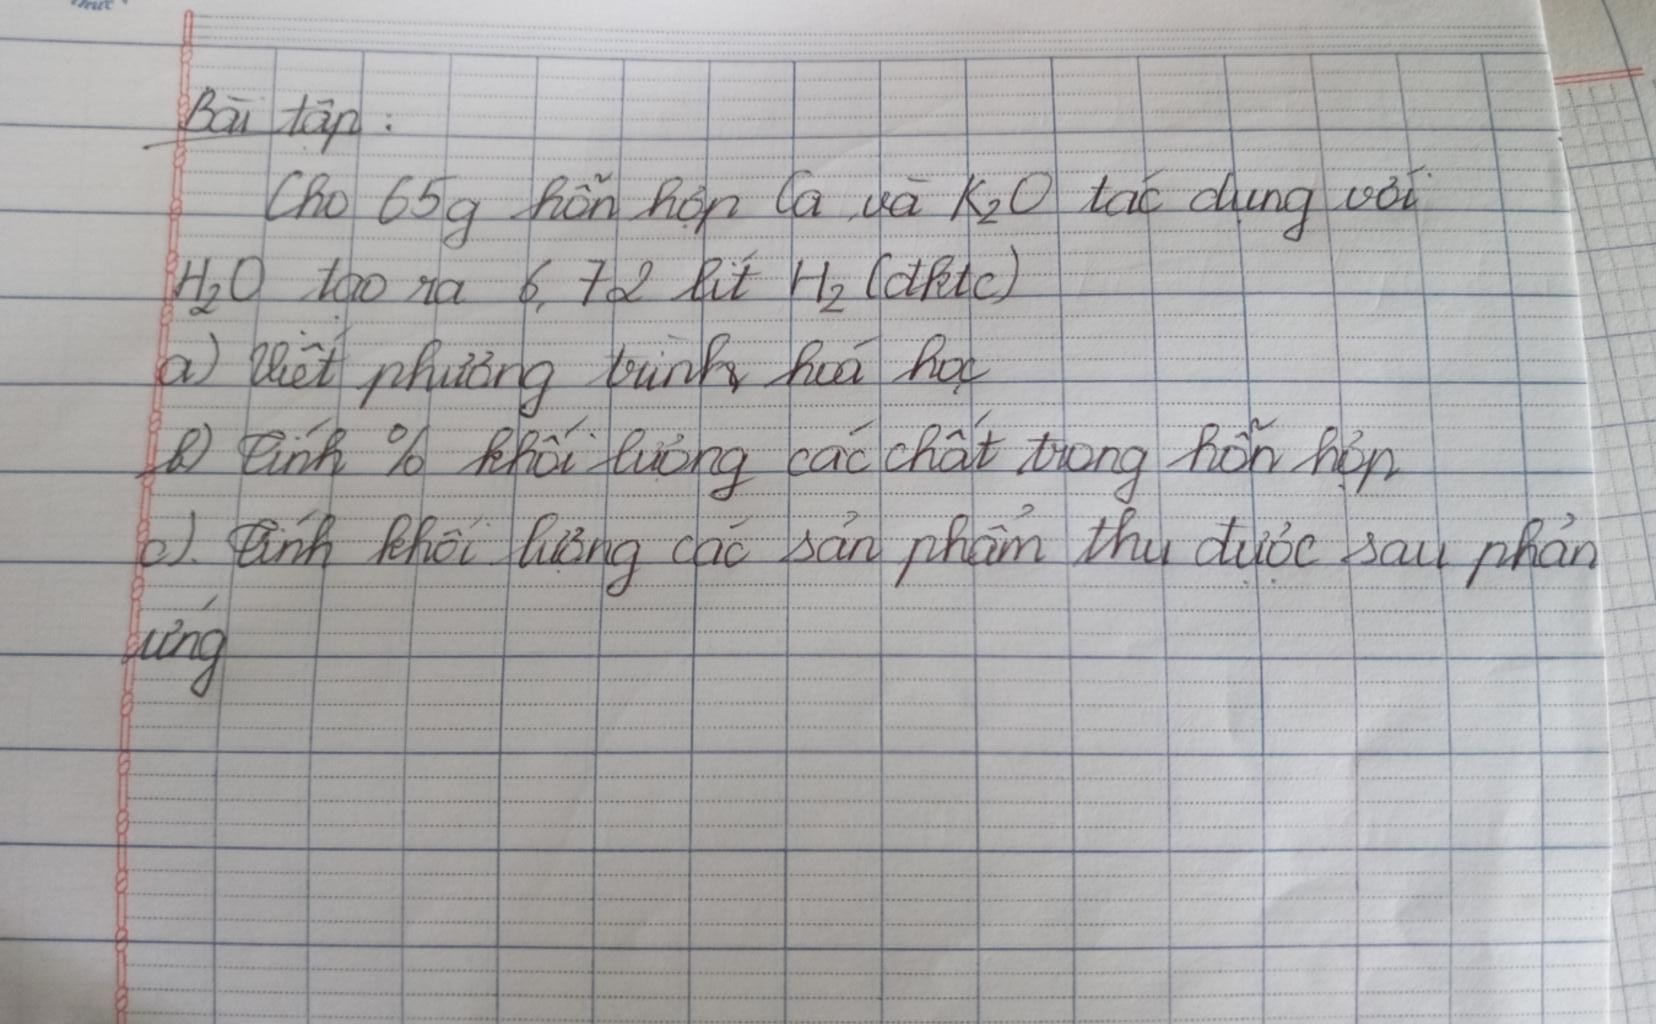 Bài tập:
Cho 65g hỗn hợp Ca và K₂O tác dụng với
H₂O tạo ra 6,72 lít H₂ (đktc)
a) Viết phương trình hoá học
b) Tính % khối lượng các chất trong hỗn hợp
c). Tính khối lượng các sản phẩm thu được sau phản
ứng